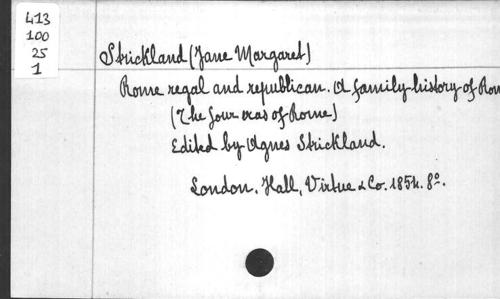 413
100
25
1
Strickland (Jane Margaret)
Rome regal and republican. A family history of Rom
(The four eras of Rome)
Edited by Agnes Strickland.
London. Hall, Virtue & Co. 1854. 8º.